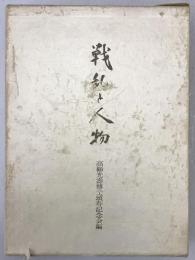 戦乱と人物
高柳光寿博士頌寿記念会編